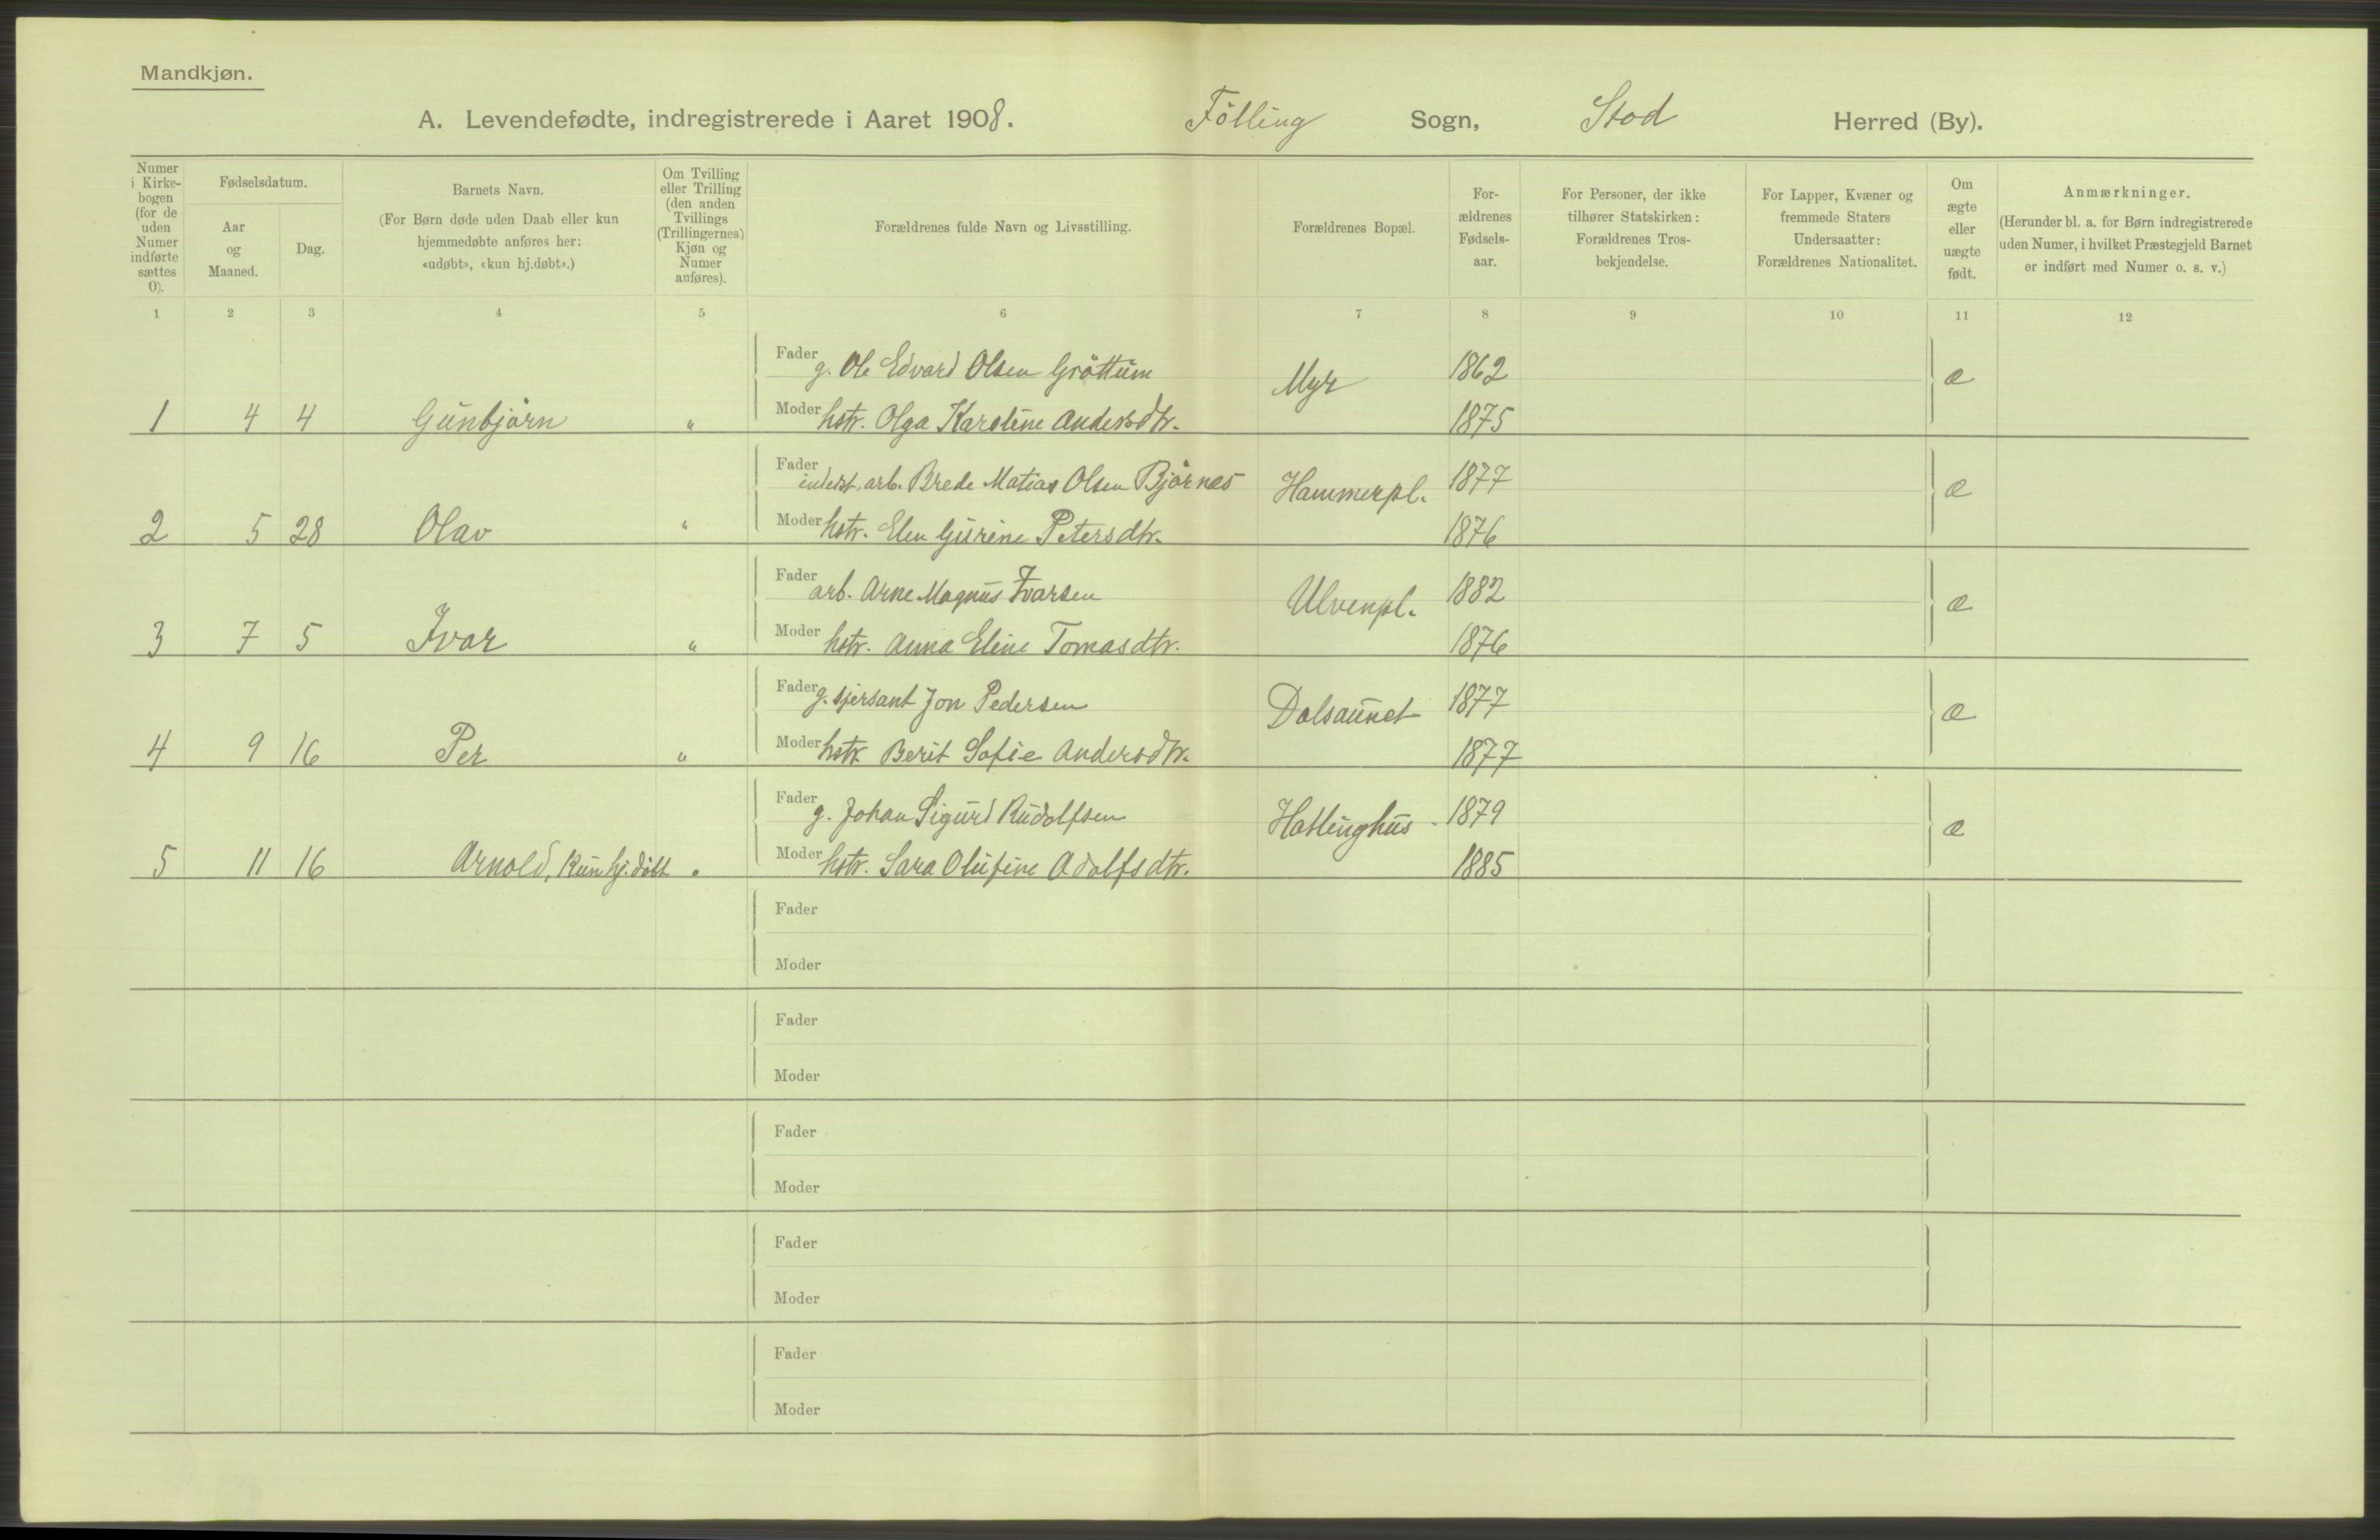 Mandkjøn.
A. Levendefødte, indregistrerede i Aaret 1908. Fölling Sogn, Stod Herred (By).
Numer i Kirke-bogen (for de uden Numer indførte sættes 0).
Fødselsdatum.
Aar og Maaned.
Dag.
Barnets Navn.
(For Børn døde uden Daab eller kun
hjemmedøbte anføres her:
«udøbt», «kun hj.døbt».)
Om Tvilling
eller Trilling
(den anden
Tvillings
(Trillingernes)
Kjøn og
Numer
anføres).
Forældrenes fulde Navn og Livsstilling.
Forældrenes Bopæl.
For-
ældrenes
Fødsels-
aar.
For Personer, der ikke
tilhører Statskirken:
Forældrenes Tros-
bekjendelse.
For Lapper, Kvæner og
fremmede Staters
Undersaatter:
Forældrenes Nationalitet.
Om
ægte
eller
uægte
født.
Anmærkninger.
(Herunder bl. a. for Børn indregistrerede
uden Numer, i hvilket Præstegjeld Barnet
er indført med Numer o. s. v.)
1 2 3 4 5 6 7 8 9 10 11 12
Fader g. Ole Edvard Olsen Gröttum Myr 1862 æ
1 4 4 Gunbjörn " Moder hstr. Olga Karoline Andersdtr. 1875
Fader inderst, arb. Brede Matias Olsen Björnes Hammerpl. 1877 æ
2 5 28 Olav " Moder hstr. Elen Gurine Petersdtr. 1876
Fader arb. Arne Magnus Ivarsen Ulvenpl. 1882 æ
3 7 5 Ivar " Moder hstr. Anna Eline Tomasdtr. 1876
Fader g. sjersant Jon Pedersen Dalsaunet 1877 æ
4 9 16 Per " Moder hstr. Berit Sofie Andersdtr. 1877
Fader g. Johan Sigurd Rudolfsen Hatlinghus 1879 æ
5 11 16 Arnold, kun hj. döbt " Moder hstr. Sara Olufine Adolfsdtr. 1885
Fader
Moder
Fader
Moder
Fader
Moder
Fader
Moder
Fader
Moder